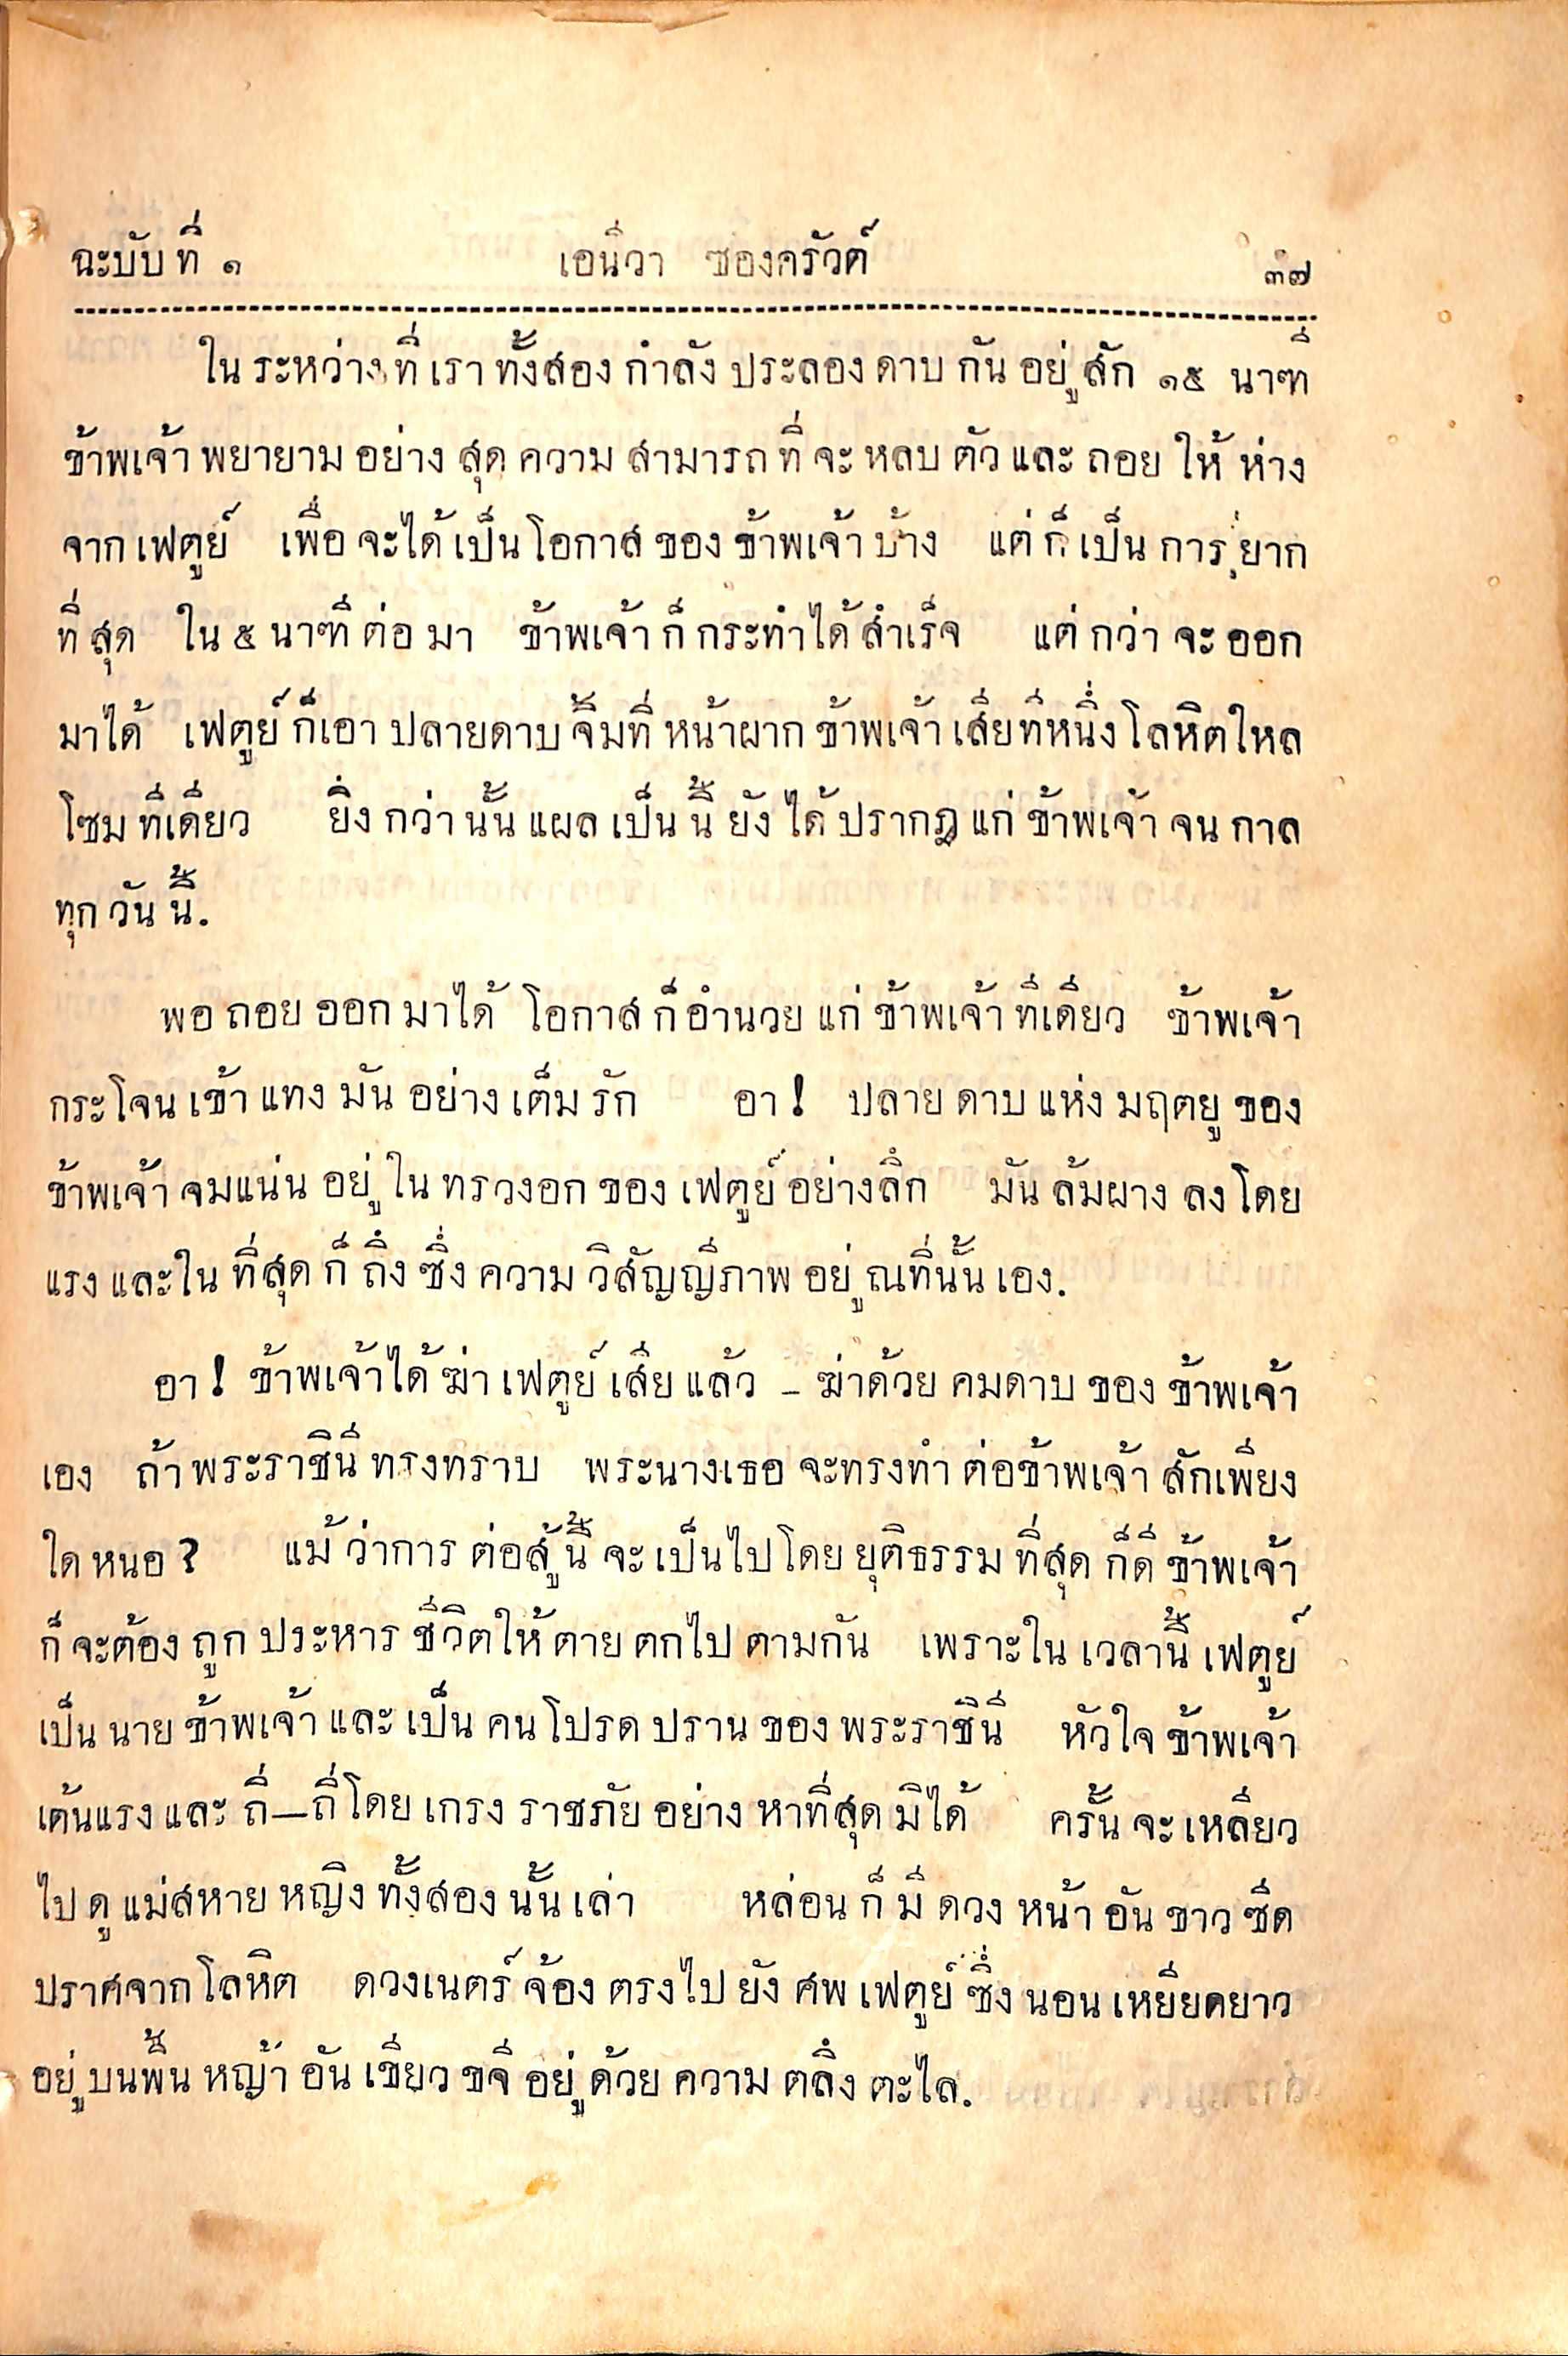 ฉะบับที่ ๑ เอนิวา ซองครัวต์ ๓๗
ในระหว่างที่เราทั้งสองกำลังประลองดาบกันอยู่สัก ๑๕ นาฑี
ข้าพเจ้าพยายามอย่างสุดความสามารถที่จะหลบตัวและถอยให้ห่าง
จากเฟตูย์ เพื่อจะได้เป็นโอกาสของข้าพเจ้าบ้าง แต่ก็เป็นการยาก
ที่สุด ใน ๕ นาฑีต่อมา ข้าพเจ้าก็กระทำได้สำเร็จ แต่กว่าจะออก
มาได้ เฟตูย์ก็เอาปลายดาบจิ้มที่หน้าผากข้าพเจ้าเสียทีหนึ่งโลหิตไหล
โซมทีเดียว ยิ่งกว่านั้นแผลเป็นนี้ยังได้ปรากฎแก่ข้าพเจ้าจนกาล
ทุกวันนี้.
พอถอยออกมาได้ โอกาสก็อำนวยแก่ข้าพเจ้าทีเดียว ข้าพเจ้า
กระโจนเข้าแทงมันอย่างเต็มรัก อา! ปลายดาบแห่งมฤตยูของ
ข้าพเจ้าจมแน่นอยู่ในทรวงอกของเฟตูย์อย่างลึก มันล้มผางลงโดย
แรงและในที่สุดก็ถึงซึ่งความวิสัญญีภาพอยู่ณที่นั้นเอง.
อา! ข้าพเจ้าได้ฆ่าเฟตูย์เสียแล้ว – ฆ่าด้วยคมดาบของข้าพเจ้า
เอง ถ้าพระราชินีทรงทราบ พระนางเธอจะทรงทำต่อข้าพเจ้าสักเพียง
ใดหนอ? แม้ว่าการต่อสู้นี้จะเป็นไปโดยยุติธรรมที่สุดก็ดีข้าพเจ้า
ก็จะต้องถูกประหารชีวิตให้ตายตกไปตามกัน เพราะในเวลานี้เฟตูย์
เป็นนายข้าพเจ้าและเป็นคนโปรดปรานของพระราชินี หัวใจข้าพเจ้า
เต้นแรงและถี่—ถี่โดยเกรงราชภัยอย่างหาที่สุดมิได้ ครั้นจะเหลียว
ไปดูแม่สหายหญิงทั้งสองนั้นเล่า หล่อนก็มีดวงหน้าอันขาวซีด
ปราศจากโลหิต ดวงเนตร์จ้องตรงไปยังศพเฟตูย์ซึ่งนอนเหยียดยาว
อยู่บนพื้นหญ้าอันเขียวขจีอยู่ด้วยความตลึงตะไล.